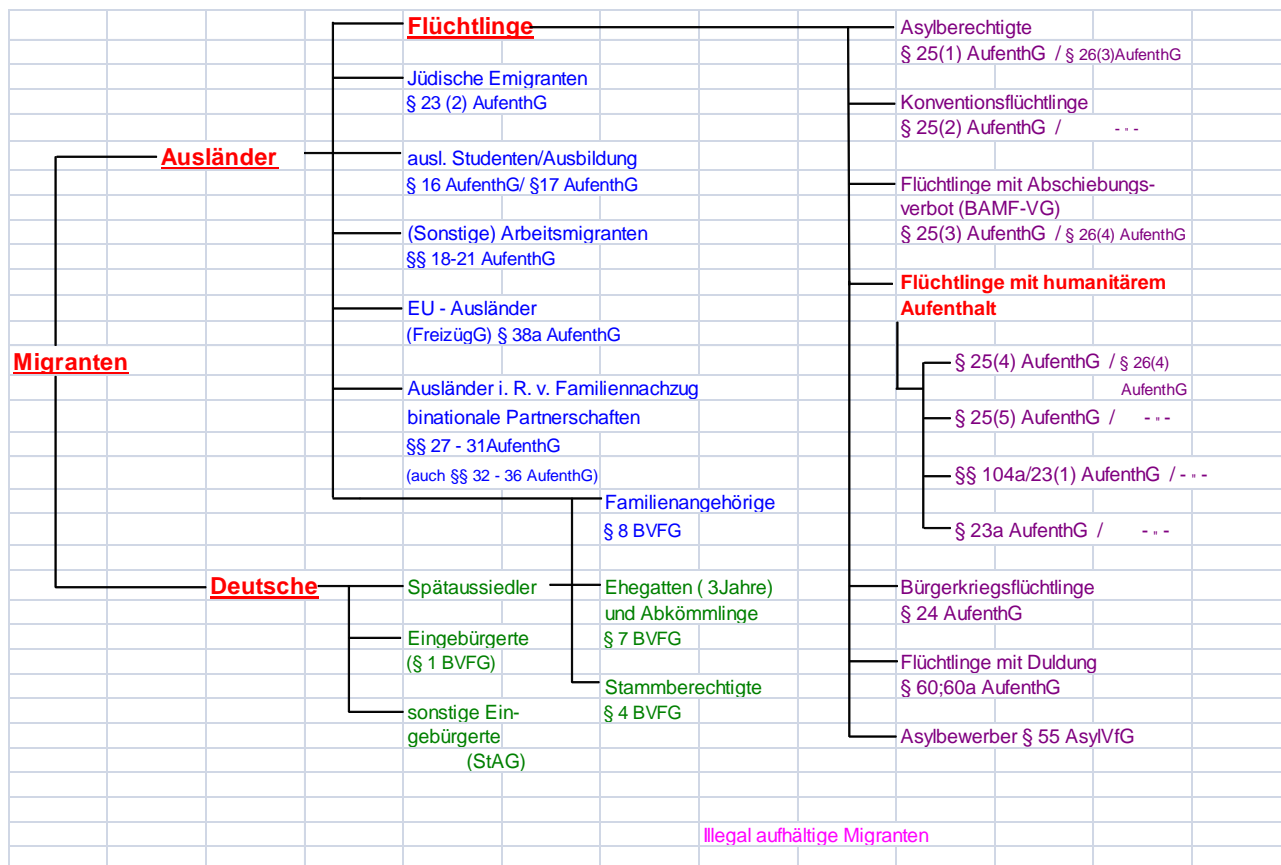 Flüchtlinge
Jüdische Emigranten
§ 23 (2) AufenthG
Ausländer
ausl. Studenten/Ausbildung
§ 16 AufenthG/ §17 AufenthG
(Sonstige) Arbeitsmigranten
§§ 18-21 AufenthG
EU - Ausländer
(FreizügG) § 38a AufenthG
Migranten
Ausländer i. R. v. Familiennachzug
binationale Partnerschaften
§§ 27 - 31AufenthG
(auch §§ 32 - 36 AufenthG)
Familienangehörige
§ 8 BVFG
Deutsche
Spätaussiedler
Ehegatten ( 3Jahre)
und Abkömmlinge
§ 7 BVFG
Eingebürgerte
(§ 1 BVFG)
Stammberechtigte
§ 4 BVFG
sonstige Ein-
gebürgerte
(StAG)
Asylberechtigte
§ 25(1) AufenthG / § 26(3)AufenthG
Konventionsflüchtlinge
§ 25(2) AufenthG / - " -
Flüchtlinge mit Abschiebungs-
verbot (BAMF-VG)
§ 25(3) AufenthG / § 26(4) AufenthG
Flüchtlinge mit humanitärem
Aufenthalt
§ 25(4) AufenthG / § 26(4)
AufenthG
§ 25(5) AufenthG / - " -
§§ 104a/23(1) AufenthG / - " -
§ 23a AufenthG / - " -
Bürgerkriegsflüchtlinge
§ 24 AufenthG
Flüchtlinge mit Duldung
§ 60;60a AufenthG
Asylbewerber § 55 AsylVfG
Illegal aufhältige Migranten